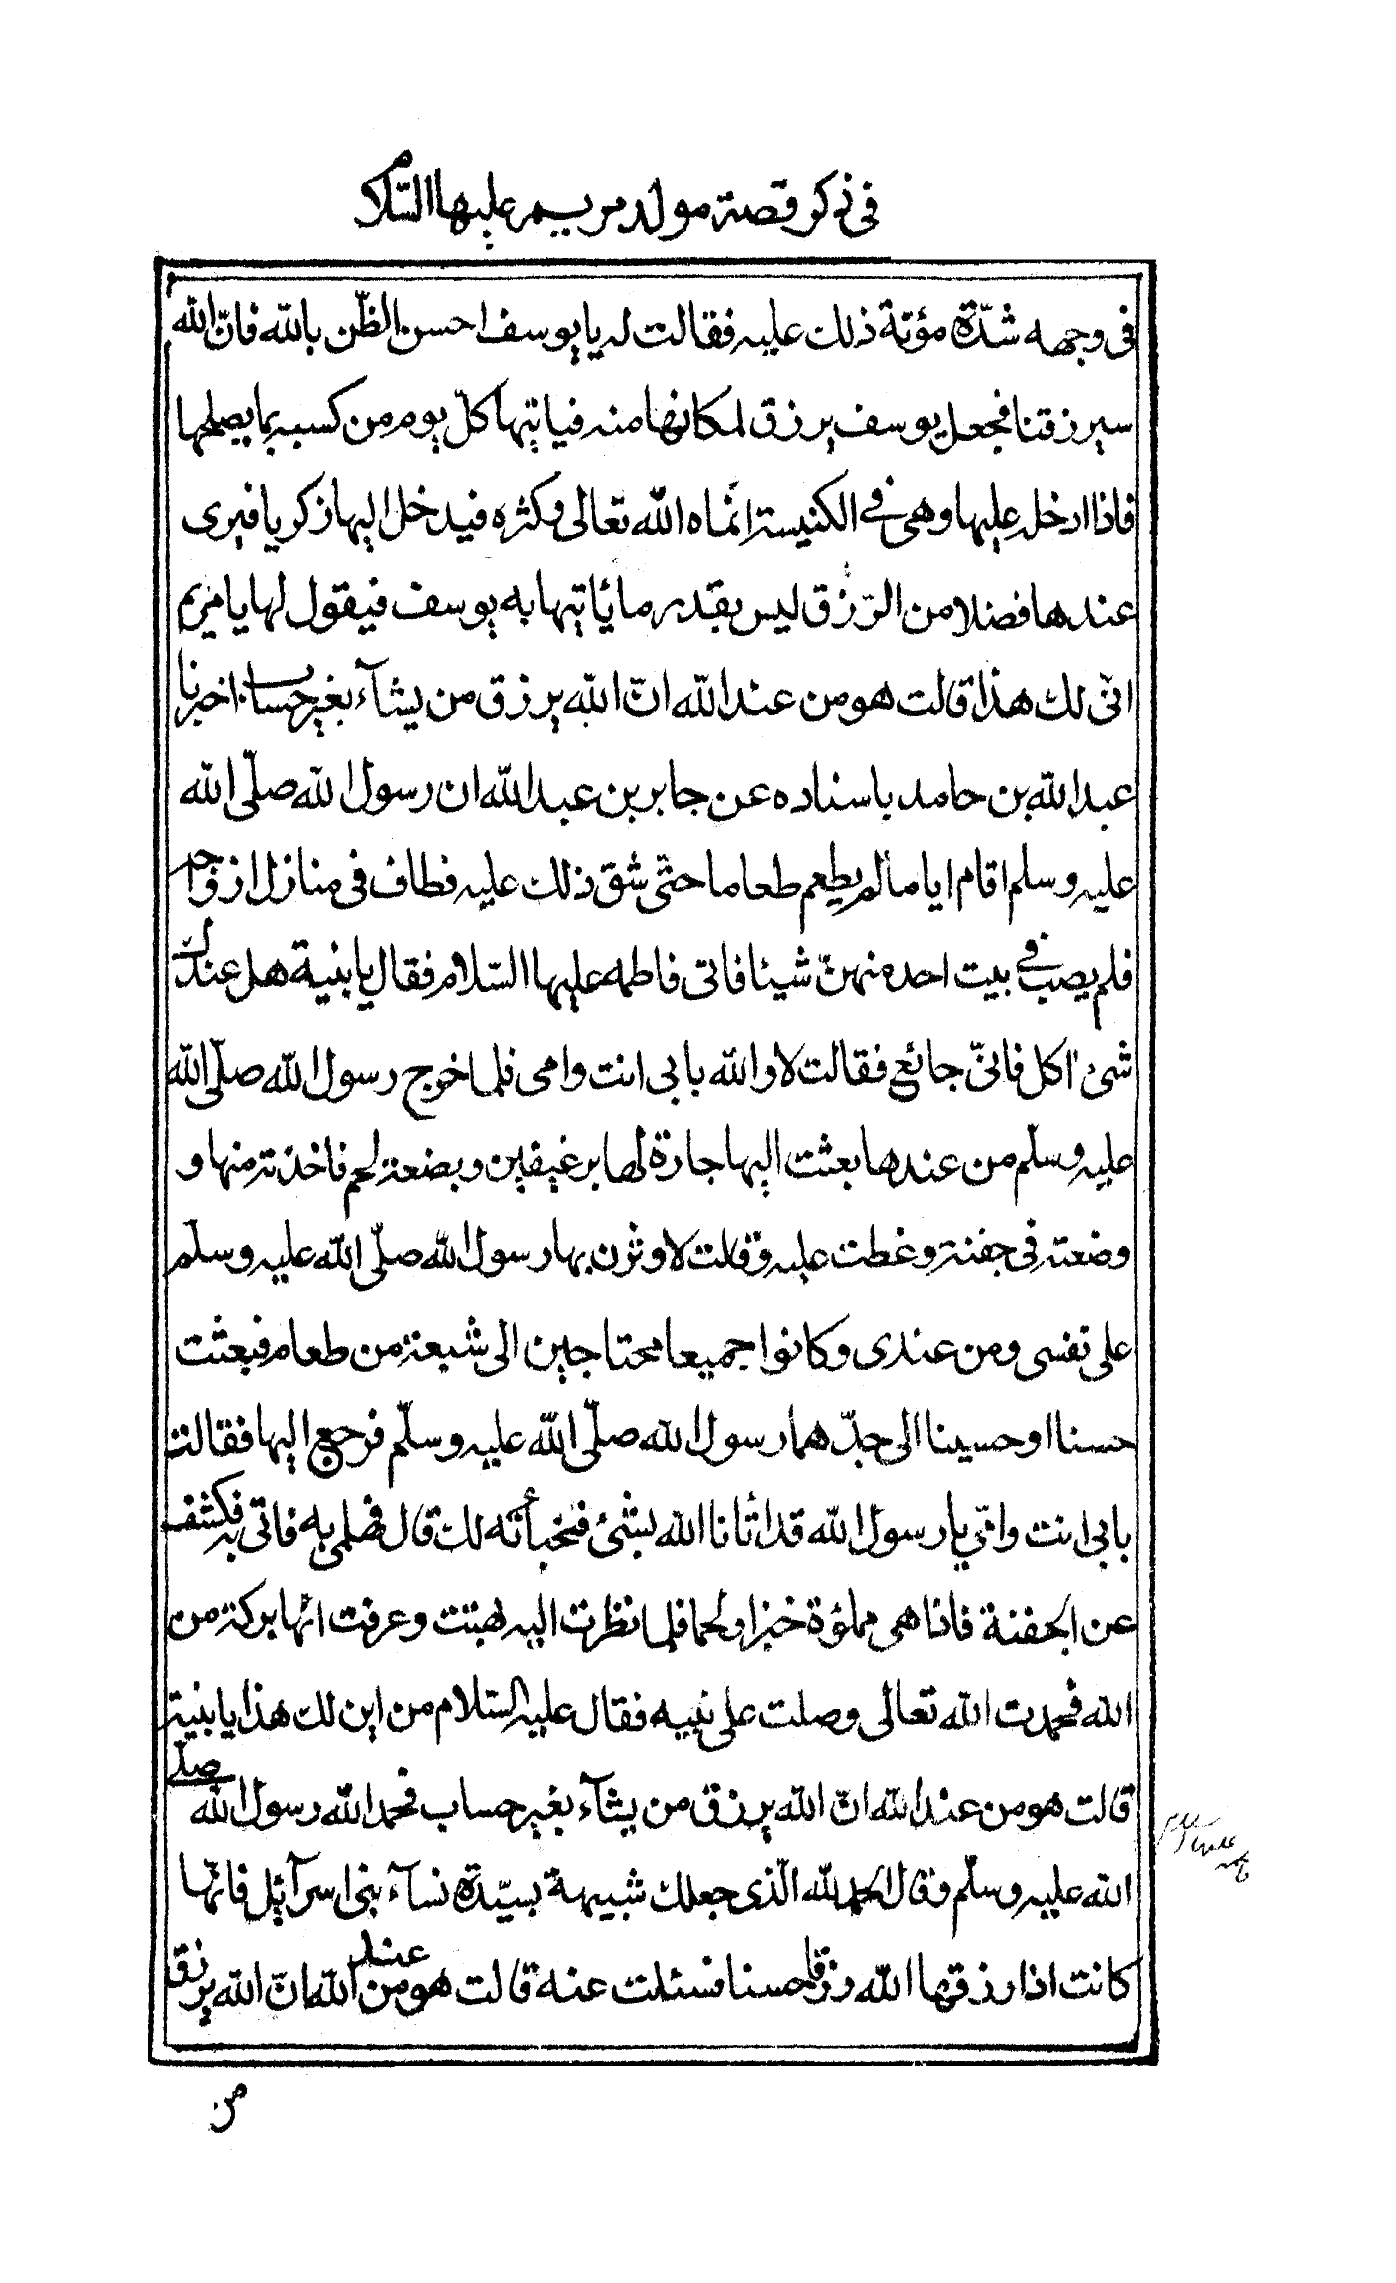 في ذكر قصة مولد مريم عليها السلام
فى وجهه شدّة مؤتة ذلك عليه فقالت له يا يوسف احسن الظّن بالله فانّ الله
سيرزقنا فجعل يوسف يرزق لمكانها منه فياتيها كلّ يوم من كسبه بما يصلحها
فاذا ادخله عليها وهى في الكنيسة انّماه الله تعالى وكثره فيدخل اليها زكريا فيرى
عندها فضلا من الرّزق ليس بقدر ما يأتيها به يوسف فيقول لها يا مريم
انّى لك هذا قالت هو من عند الله انّ الله يرزق من يشآء بغير حساب اخبرنا
عبد الله بن حامد باسناده عن جابر بن عبد الله ان رسول الله صلّى الله
عليه وسلم اقام اياما لم يطعم طعاما حتّى شقّ ذلك عليه فطاف فى منازل ازواجه
فلم يصب في بيت احده منهنّ شيئا فاتى فاطمه عليها السّلام فقال يا بنية هل عندك
شئ اكل فانىّ جائع فقالت لا والله بابى انت وامى فلما خرج رسول الله صلّى الله
عليه وسلّم من عندها بعثت اليها جارة لها برغيفين وبضعة لحم فاخذته منها و
وضعته فى جفنة وغطت عليه وقالت لاوثرن بها رسول الله صلّى الله عليه وسلّم
على نفسى ومن عندى وكانوا جميعا محتاجين الى شبعة من طعام فبعثت
حسنا او حسينا الى جدّهما رسول الله صلّى الله عليه وسلّم فرجع اليها فقالت
بابى انت وامّي يا رسول الله قد اتانا الله بشئ فخبأته لك قال فهلمى به فاتى به فكشف
عن الجفنة فاذا هى مملؤة خبزا ولحما فلما نظرت اليه بهتت وعرفت انّها بركة من
الله فحمدت الله تعالى وصلت على نبيه فقال عليه السّلام من اين لك هذا يا بنية
قالت هو من عند الله انّ الله يرزق من يشآء بغير حساب فحمد الله رسول الله صلّى
الله عليه وسلّم وقال الحمد لله الّذى جعلك شبيهة بسيّدة نسآء بنى اسرآئيل فانّها
كانت اذا رزقها الله رزقا حسنا فسئلت عنه قالت هو من عند الله انّ الله يرزق
من